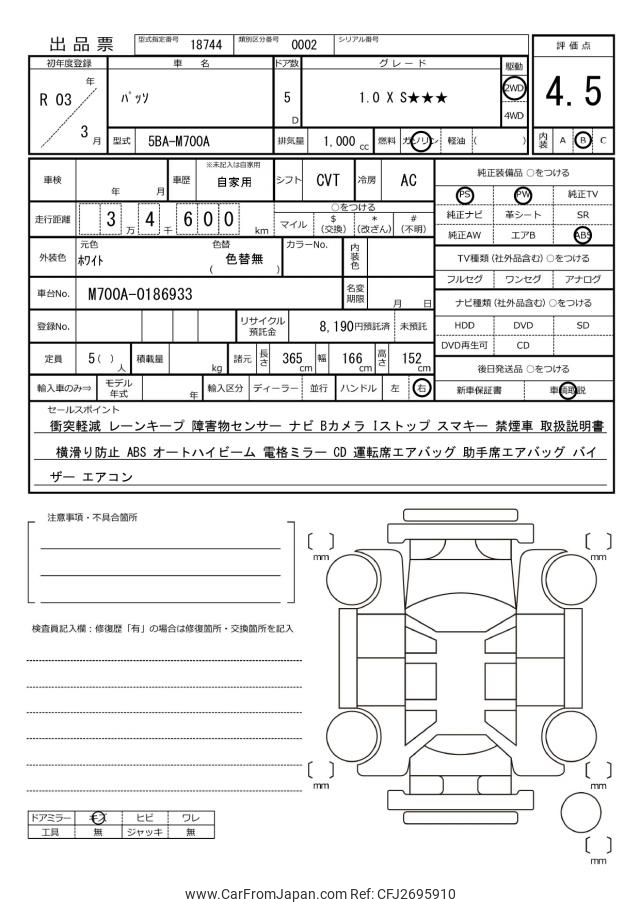 出品票 型式指定番号 18744 類別区分番号 0002 シリアル番号
評価点
4.5
内装 A B C
初年度登録 車名 ドア数 グレード 駆動
R 03 年 3 月 パッソ 5 D 1.0 X S★★★ 2WD 4WD
型式 5BA-M700A 排気量 1,000 cc 燃料 ガソリン 軽油 ( )
車検 年 月 車歴 ※未記入は自家用 自家用 シフト CVT 冷房 AC
走行距離 3 4 万 千 6 0 0 km
○をつける
マイル $ (交換) * (改ざん) # (不明)
外装色 元色 ホワイト 色替 ( 色替無 ) カラーNo. 内装色
車台No. M700A-0186933 名変期限 月 日
登録No. リサイクル預託金 8,190円預託済 未預託
定員 5 ( ) 人 積載量 kg 諸元 長さ 365 cm 幅 166 cm 高さ 152 cm
輸入車のみ⇒ モデル年式 年 輸入区分 ディーラー 並行 ハンドル 左 右
純正装備品 ○をつける
PS PW 純正TV
純正ナビ 革シート SR
純正AW エアB ABS
TV種類 (社外品含む) ○をつける
フルセグ ワンセグ アナログ
ナビ種類 (社外品含む) ○をつける
HDD DVD SD
DVD再生可 CD
後日発送品 ○をつける
新車保証書 車輌取説
セールスポイント
衝突軽減 レーンキープ 障害物センサー ナビ Bカメラ Iストップ スマキー 禁煙車 取扱説明書
横滑り防止 ABS オートハイビーム 電格ミラー CD 運転席エアバッグ 助手席エアバッグ バイ
ザー エアコン
注意事項・不具合箇所
検査員記入欄：修復歴「有」の場合は修復箇所・交換箇所を記入
[ ] mm
[ ] mm
[ ] mm
[ ] mm
[ ] mm
ドアミラー キズ ヒビ ワレ
工具 無 ジャッキ 無
www.CarFromJapan.com Ref: CFJ2695910